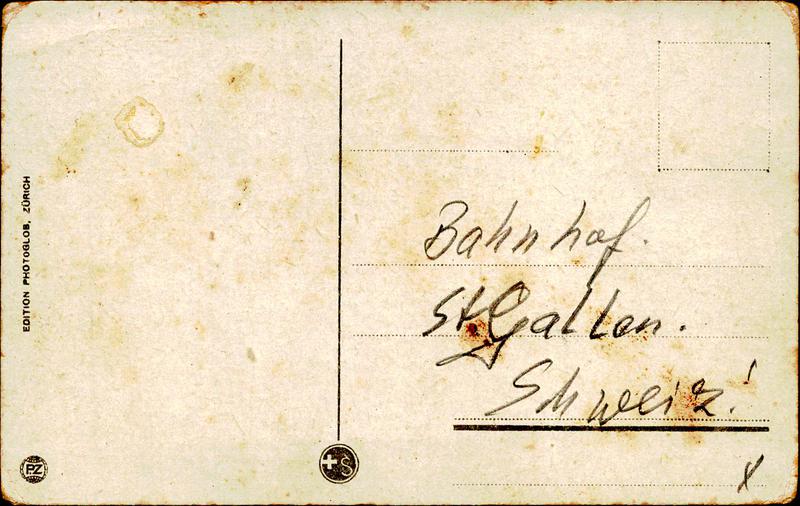 EDITION PHOTOGLOB, ZÜRICH
Bahnhof.
St. Gallen.
Schweiz!
PZ
+S
x